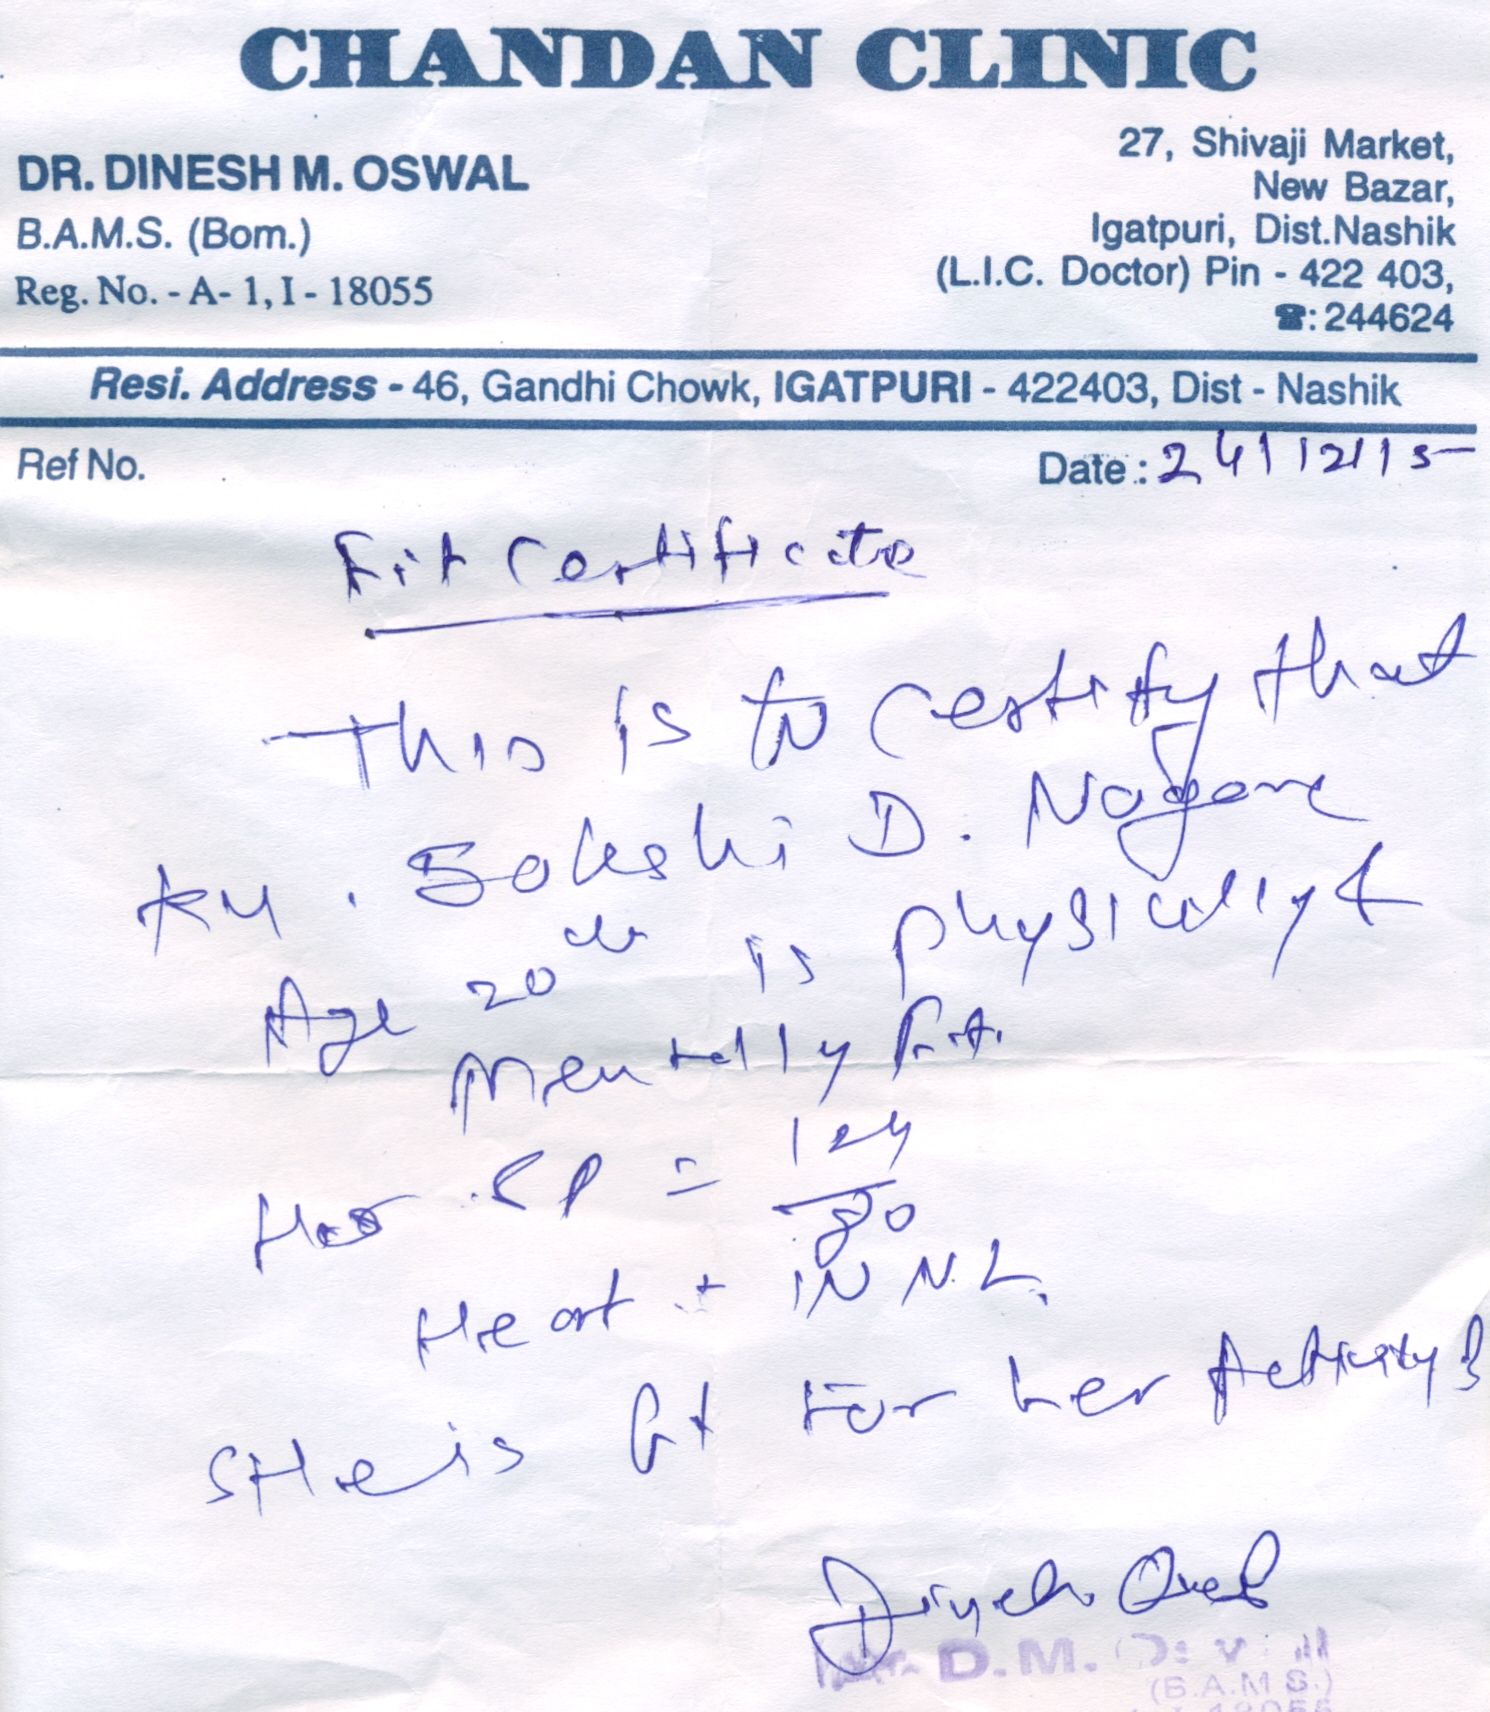 CHANDAN CLINIC
DR. DINESH M. OSWAL
B.A.M.S. (Bom.)
Reg. No. - A- 1, I - 18055
27, Shivaji Market,
New Bazar,
Igatpuri, Dist.Nashik
(L.I.C. Doctor) Pin - 422 403,
☎: 244624
Resi. Address - 46, Gandhi Chowk, IGATPURI - 422403, Dist - Nashik
Ref No.
Date : 24/12/15
Fit Certificate
This is to certify that
Ku. Sakshi D. Nagare
Age 20 is physically &
Mentally fit.
Her BP = 124/80
Heart - IN N.L.
SHe is fit For her Activity
Dinesh Oswal
D.M.
(B.A.M.S.)
18055